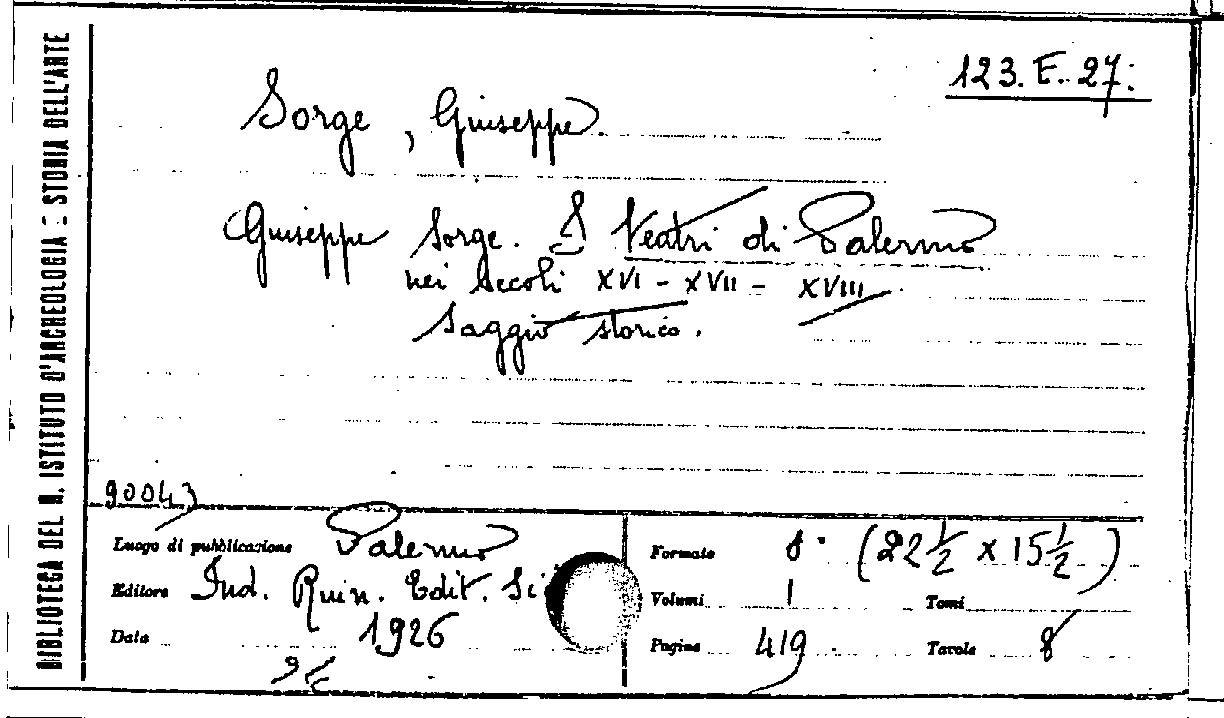 BIBLIOTECA DEL R. ISTITUTO D'ARCHEOLOGIA E STORIA DELL'ARTE
123. E. 27.
Sorge, Giuseppe.
Giuseppe Sorge. I Teatri di Palermo
nei secoli XVI - XVII - XVIII
Saggio storico.
90043
Luogo di pubblicazione Palermo
Editore Ind. Riun. Edit. Si
Data 1926
Formato 8° (22 ½ x 15 ½)
Volumi 1 Tomi
Pagine 419 Tavole 8